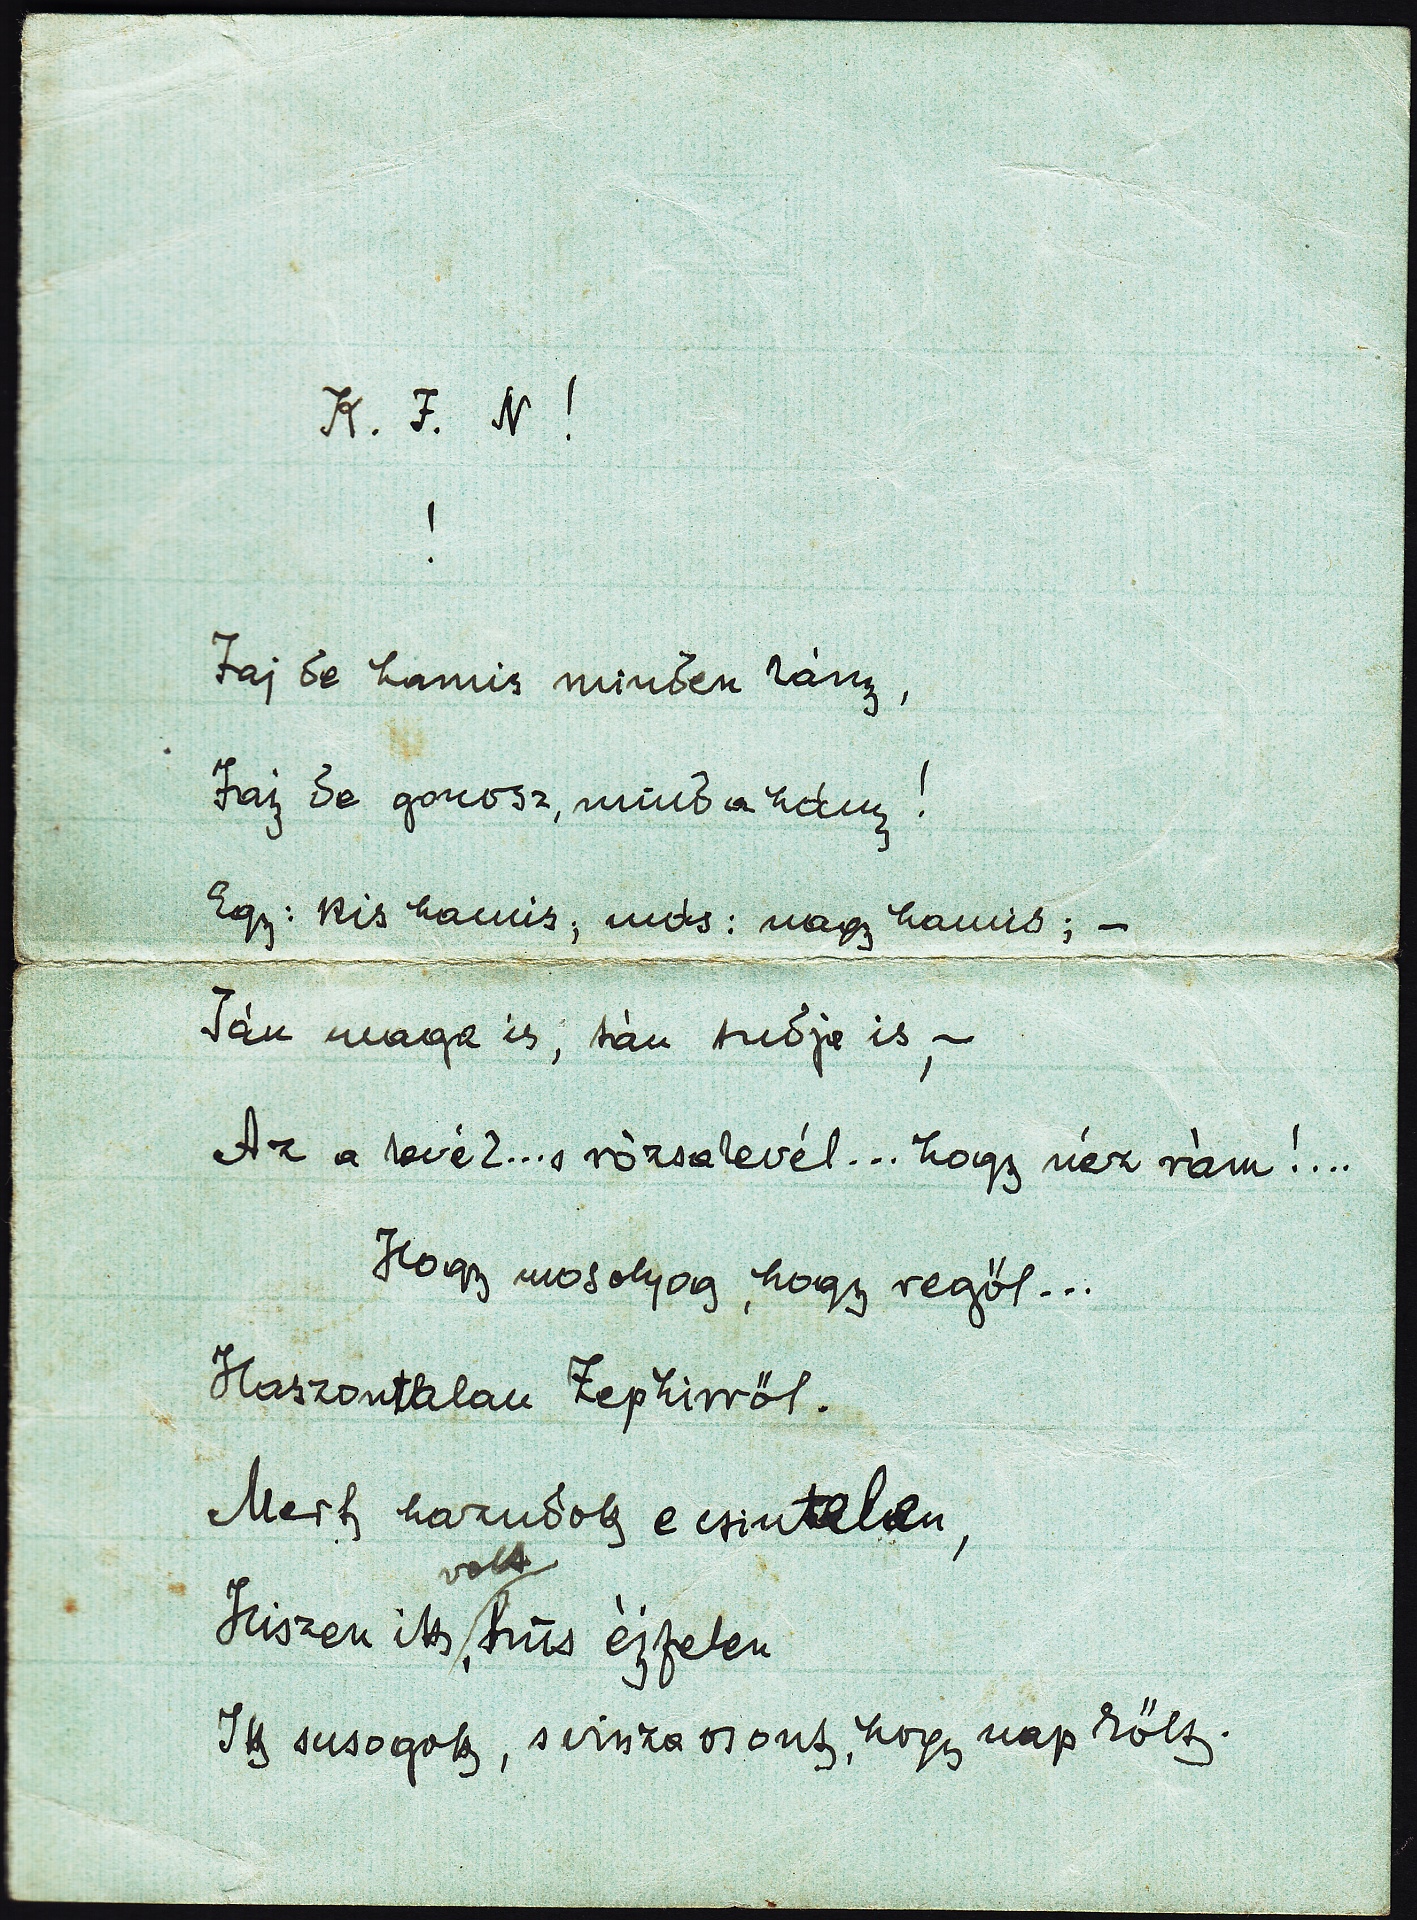 K. J. N!
!
Jaj be hamis minden lány,
Jaj be gonosz, mind a hány!
Egy: kis hamis; más: nagy hamis; –
Tán maga is, tán tudja is, –
Az a levél... s rózsalevél... hogy néz rám!...
Hogy mosolyog, hogy regöl...
Haszontalan Zephirről.
Mert hazudott e csintalan,
volt
Hiszen itt, hűs éjfelen
Itt susogott, s vissza osont, hogy nap költ.